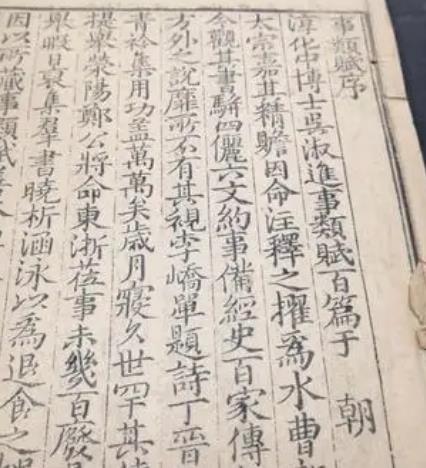 事類賦序
淳化中博士吳淑進事類賦百篇于　朝
太宗嘉其精贍因命注釋之擢爲水曹
今觀其書駢四儷六文約事備經史百家傳
方外之說靡所不有其視李嶠單題詩丁晉
青衿集用功盖萬萬矣歲月寖久世罕其
提舉榮陽鄭公將命東浙莅事未幾百廢
舉暇日裒集羣書曉析涵泳以爲退食之
因以所藏事類賦